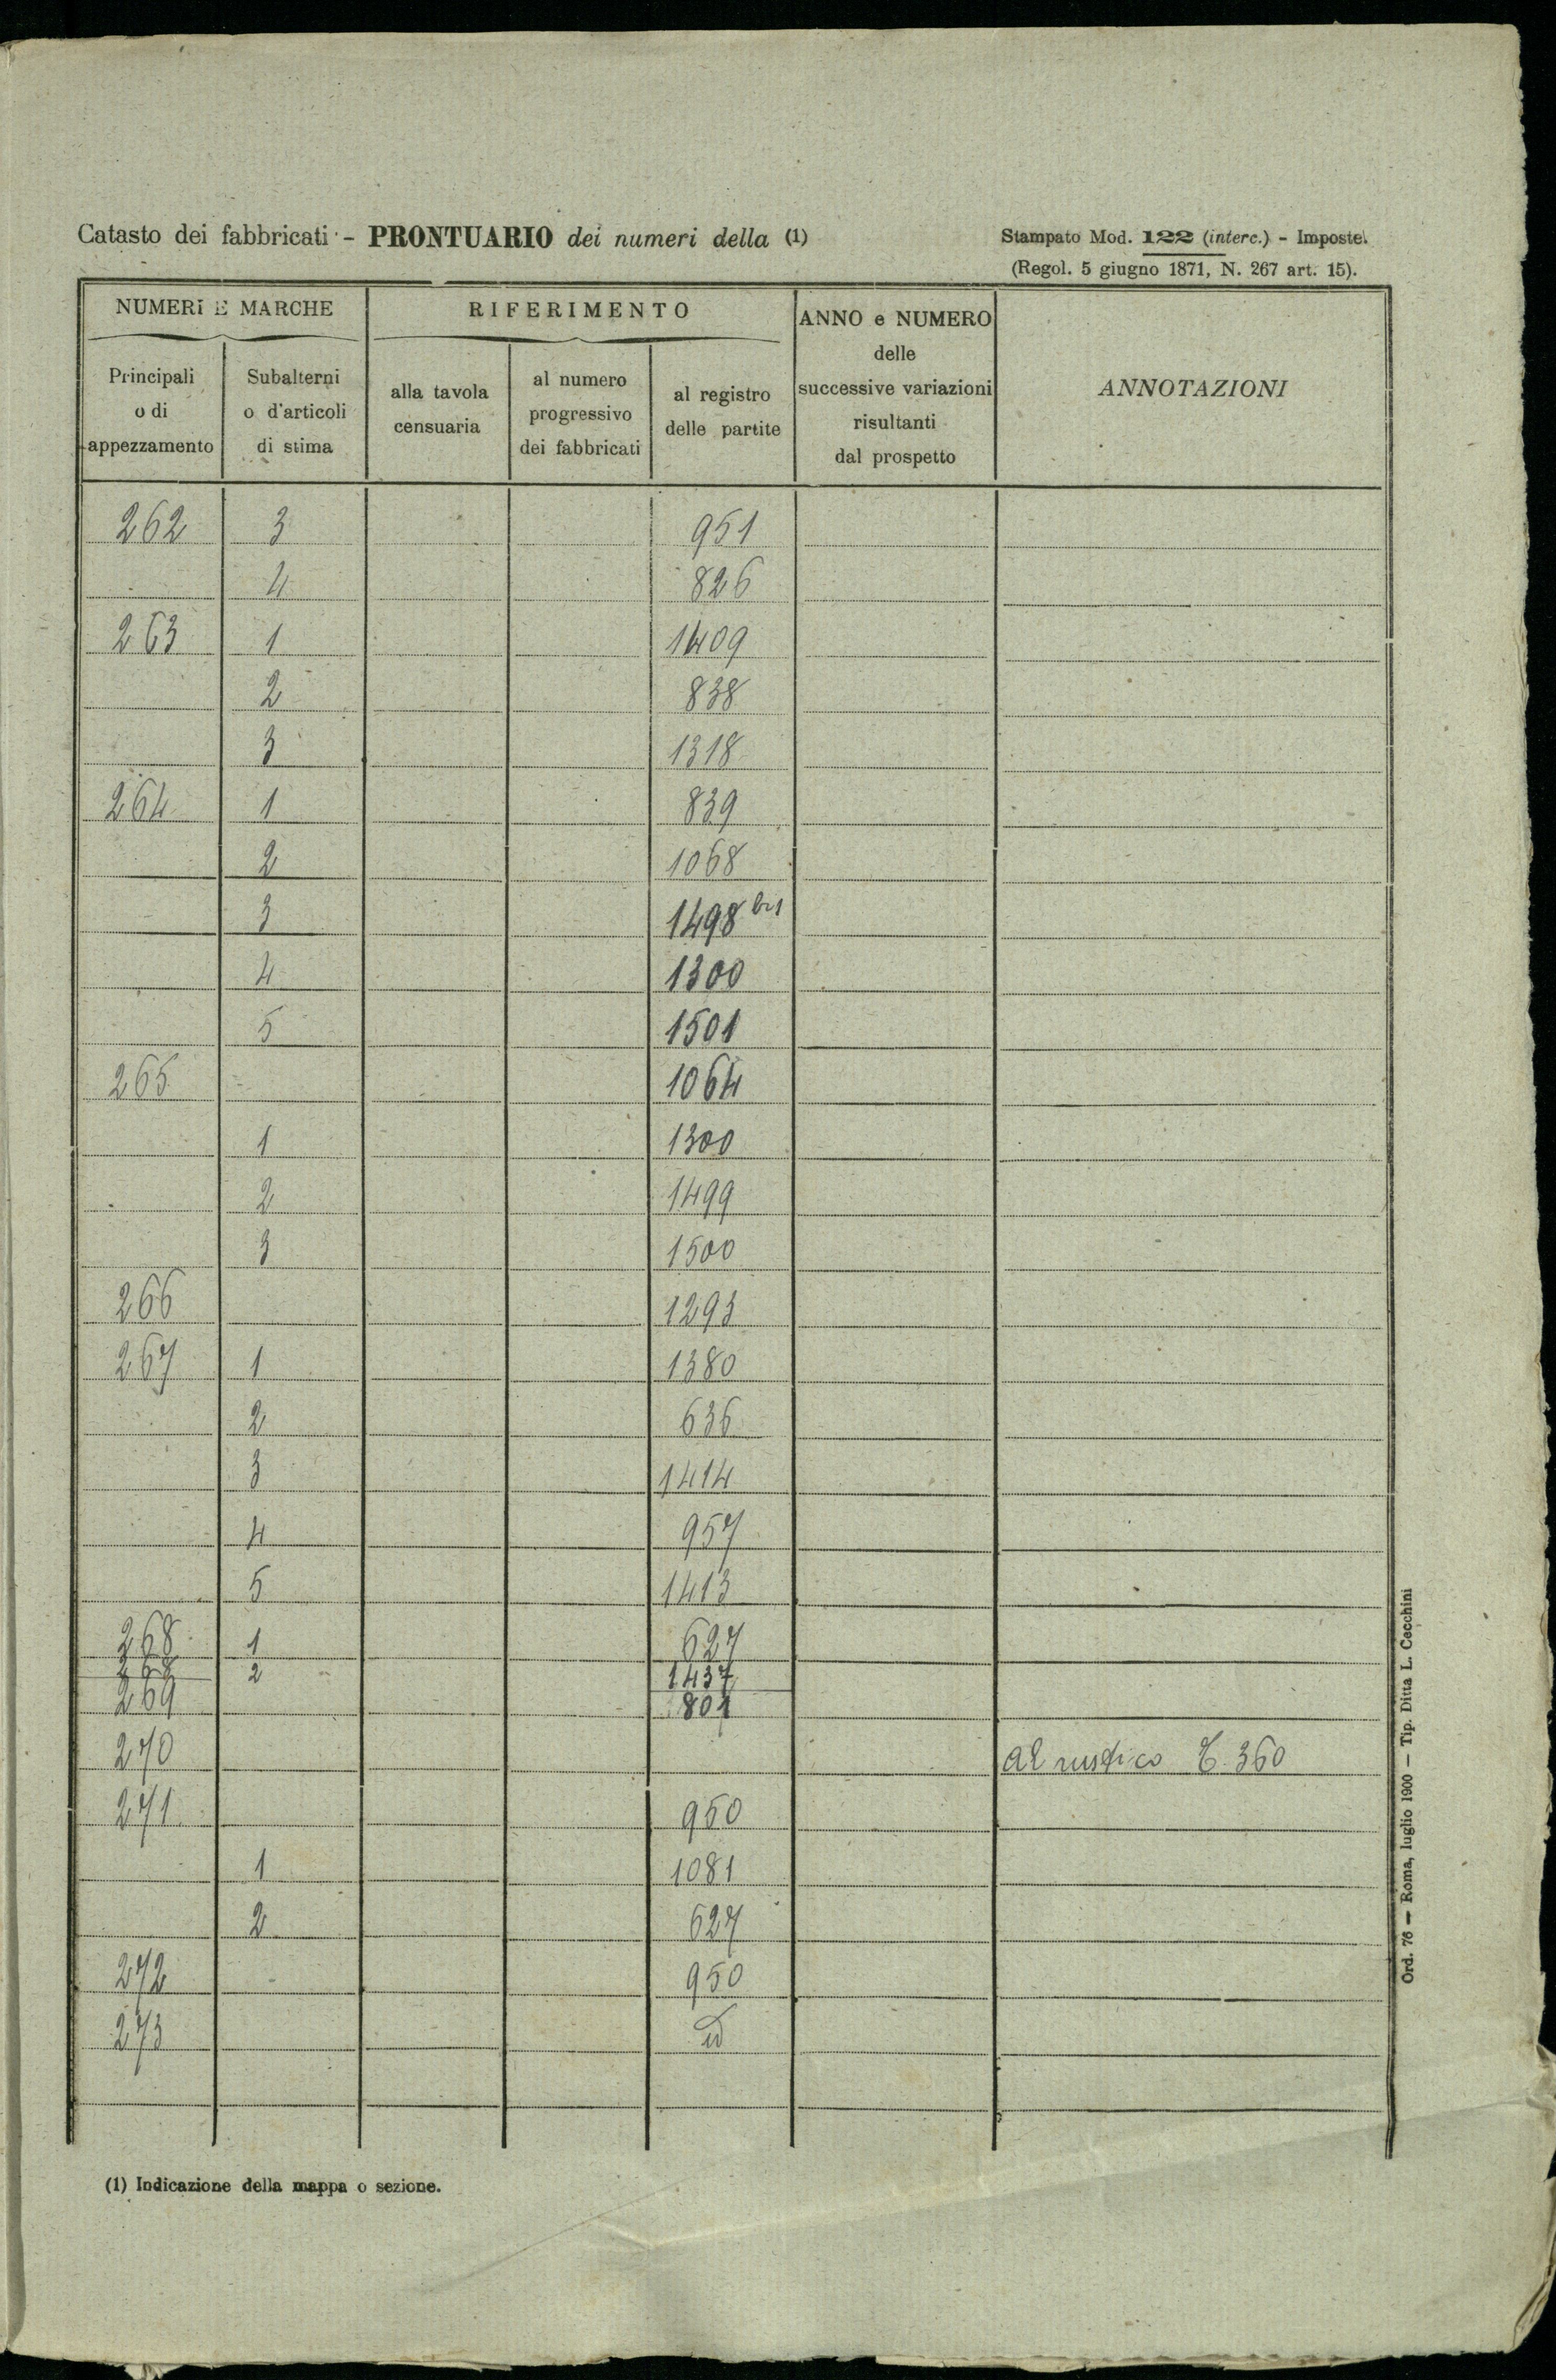 Catasto dei fabbricati - PRONTUARIO dei numeri della (1)
Stampato Mod. 122 (interc.) - Imposte.
(Regol. 5 giugno 1871, N. 267 art. 15).
NUMERI E MARCHE RIFERIMENTO ANNO e NUMERO delle successive variazioni risultanti dal prospetto ANNOTAZIONI
Principali o di appezzamento Subalterni o d'articoli di stima alla tavola censuaria al numero progressivo dei fabbricati al registro delle partite
262 3 951
4 826
263 1 1409
2 838
3 1318
264 1 839
2 1068
3 1498 bis
4 1300
5 1501
265 1064
1 1300
2 1499
3 1500
266 1293
267 1 1380
2 636
3 1414
4 957
5 1413
268 1 627
268 2 1437
269 801
270 al rustico C. 360
271 950
1 1081
2 627
272 950
273 id
(1) Indicazione della mappa o sezione.
Ord. 76 — Roma, luglio 1900 — Tip. Ditta L. Cecchini